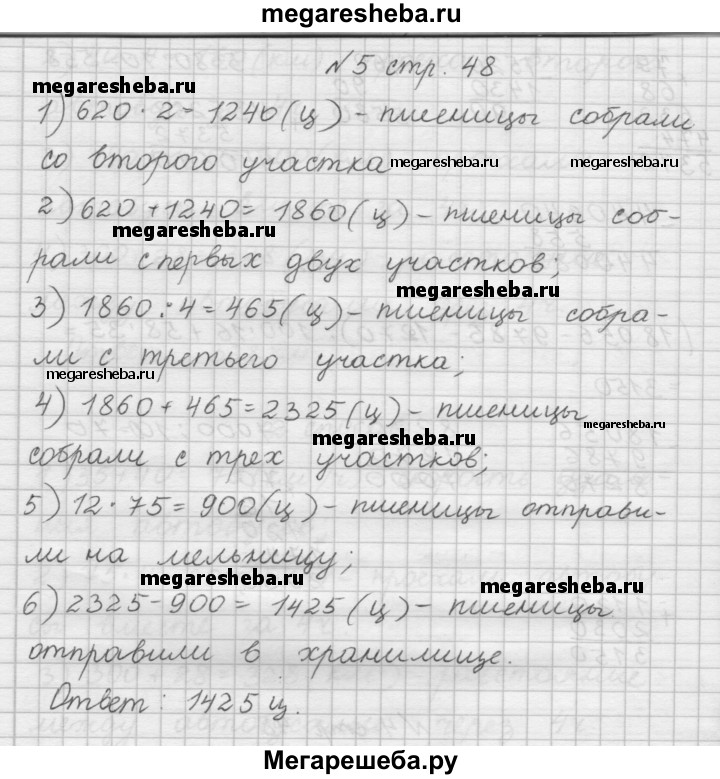 megaresheba.ru
№5 стр. 48
megaresheba.ru
1) 620 · 2 = 1240 (ц) - пшеницы собрали
со второго участка megaresheba.ru megaresheba.ru
2) 620 + 1240 = 1860 (ц) - пшеницы соб-
megaresheba.ru
рали с первых двух участков;
megaresheba.ru
3) 1860 : 4 = 465 (ц) - пшеницы собра-
ли с третьего участка;
megaresheba.ru
4) 1860 + 465 = 2325 (ц) - пшеницы
megaresheba.ru
megaresheba.ru
собрали с трех участков;
5) 12 · 75 = 900 (ц) - пшеницы отправи-
ли на мельницу;
megaresheba.ru megaresheba.ru
6) 2325 - 900 = 1425 (ц) - пшеницы
отправили в хранилище.
Ответ: 1425 ц.
Мегарешеба.ру